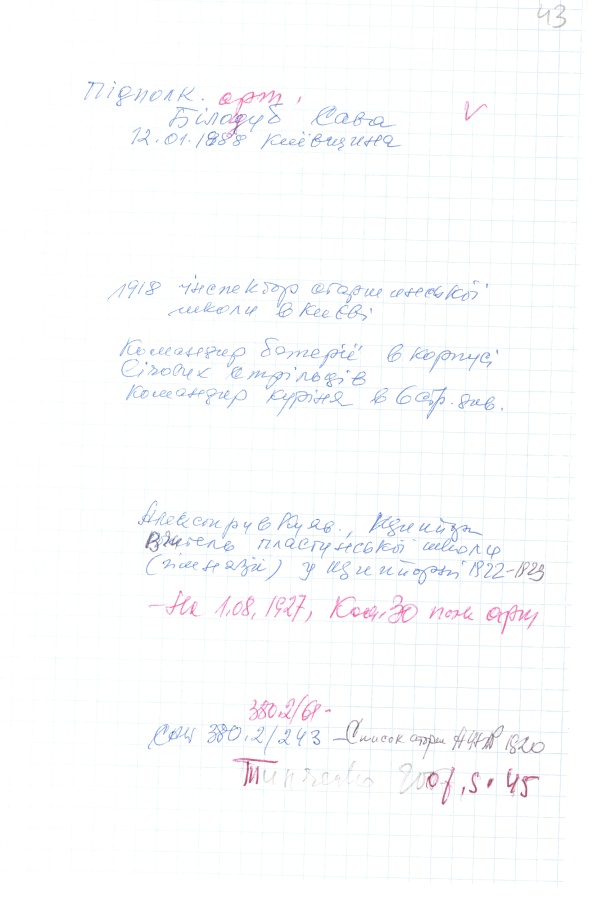 43
Підполк. арт.
Біладуб Сава V
12.01.1888 Київщина
1918 інспектор старшинської
школи в Києві
Командир батерії в корпусі
Січових стрільців
Командир куріня в 6 стр. див.
Александрув Куяв., Щипйорн
Вчитель пластунської школи
(гімназії) у Щипйорні 1922-1923
- На 1.08.1927, Кол. 30 полк арт
380.2/61-
САW 380.2/243 - Список старш АУНР 1920
Тинченко 2007, s. 45